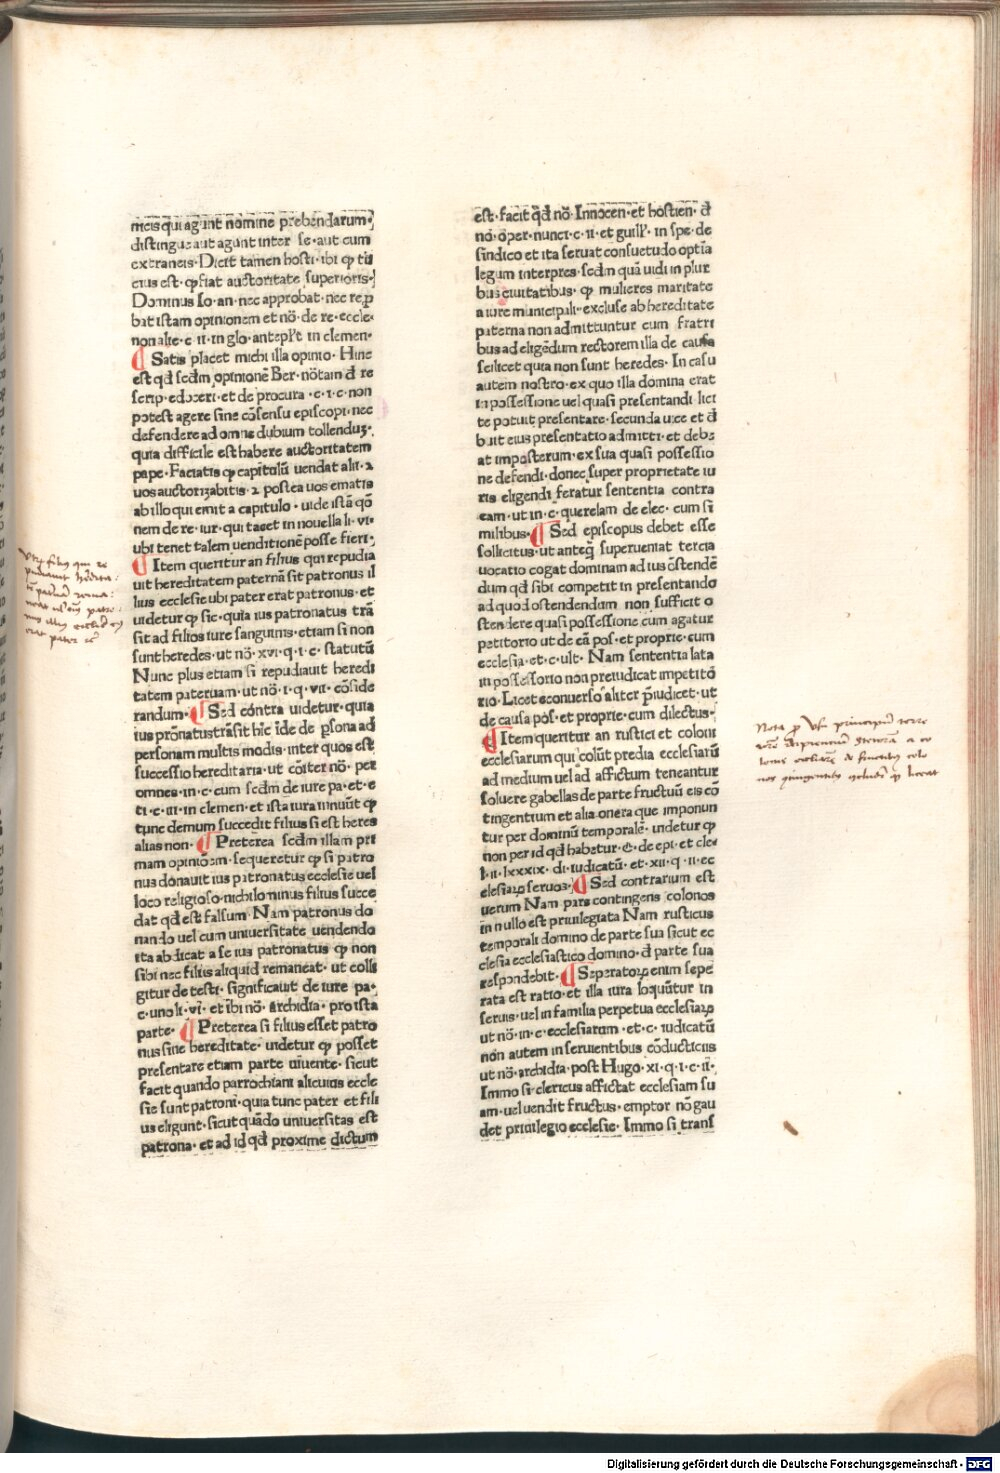 nicis qui agunt nomine prebendarum·
distingue aut agunt inter se·aut cum
extraneis·Dicit tamen hosti·ibi ꝙ tu
cius est·ꝙ fiat auctoritate superioris·
Dominus Io·an·nec approbat·nec rep̱
bat istam opinionem et nō·de re·eccle·
non alie·c·ii·in glo·antepl̄t in clemen·
¶ Satis placet michi illa opinio· Hinc
est qđ scđm opinionē Ber·nōtam đ re
scrip·edoceri·et de procura·c·i·c·non
potest agere sine cōsensu episcopi·nec
defendere ad omne dubium tollenduʒ·
quia difficile est habere auctoritatem
pape·Faciatis ꝙ capitulū uendat alii·⁊
uos auctorizabitis·⁊ postea uos ematis
ab illo qui emit a capitulo·uide istā qō
nem de re·iur·qui tacet in nouella li·vi·
ubi tenet talem uenditionē posse fieri·
¶ Item queritur an filius qui repudia
uit hereditatem paternā sit patronus il
lius ecclesie ubi pater erat patronus·et
uidetur ꝙ sic·quia ius patronatus trā
sit ad filios iure sanguinis·etiam si non
sunt heredes·ut nō·xvi·q·i·c·statutū
Nunc plus etiam si repudiauit heredi
tatem paternam·ut nō·i·q·vii·cōside
randum·¶ Sed contra uidetur·quia
ius pronatus trāsit hic īde de ꝑsona ad
personam multis modis·inter quos est
successio hereditaria·ut cōiter nō·per
omnes·in·c·cum scđm de iure pa·et·e
ti·c·iii·in clemen·et ista iura innuūt ꝙ
tunc demum succedit filius si est heres
alias non·¶ Preterea scđm illam pri
mam opinionem·sequeretur ꝙ si patro
nus donauit ius patronatus ecclesie uel
loco religioso·nichilominus filius succe
dat qđ est falsum·Nam patronus do
nando uel cum uniuersitate uendendo
ita abdicat a se ius patronatus ꝙ non
sibi nec filiis aliquid remaneat·ut colli
gitur de testi·significauit de iure pa·
c·uno li·vi·et ibi nō·archidia·pro ista
parte·¶ Preterea si filius esset patro
nus sine hereditate·uidetur ꝙ posset
presentare etiam parte uiuente·sicut
facit quando parrochiani alicuius eccle
sie sunt patroni·quia tunc pater et fili
us eligunt·sicut quādo uniuersitas est
patrona·et ad id qđ proxime dictum
est·facit qđ nō·Innocen·et hostien·đ
nō·oper·nunci·c·ii·et guill'·in spe·de
sindico et ita seruat consuetudo optīa
legum interpres·scđm quā uidi in plur
bus ciuitatibus·ꝙ mulieres maritate
a iure municipali·excluse ab hereditate
paterna non admittuntur cum fratri
bus ad eligēdum rectorem illa de causa
scilicet quia non sunt heredes·In casu
autem nostro·ex quo illa domina erat
in possessione uel quasi presentandi lici
te potuit presentare·secunda uice et đ
buit eius presentatio admitti·et debe
at imposterum·ex sua quasi possessio
ne defendi·donec super proprietate iu
ris eligendi feratur sententia contra
eam·ut in·c·querelam de elec·cum si
milibus·¶ Sed episcopus debet esse
sollicitus·ut anteq̄ superueniat tercia
uocatio cogat dominam ad ius ostendē
dum qđ sibi competit in presentando
ad quod ostendendum non sufficit o
stendere quasi possessione cum agatur
petitorio ut de cā pos·et proprie·cum
ecclesia·et·c·ult·Nam sententia lata
in possessorio non preiudicat in petitō
rio·Licet econuerso aliter p̄iudicet·ut
de causa pos·et proprie·cum dilectus·
¶ Item queritur an rustici et coloni
ecclesiarum qui colūt predia ecclesiarū
ad medium uel ad affictum teneantur
soluere gabellas de parte fructuū eis cō
tingentium et alia onera que imponun
tur per dominū temporalē·uidetur ꝙ
non per id qđ habetur·C·de epi·et cle·
l·ii·lxxxix·di·iudicatū·et·xii·q·ii·ec
clesiaꝝ seruos·¶ Sed contrarium est
uerum Nam pars contingens colonos
in nullo est priuilegiata Nam rusticus
temporali domino de parte sua sicut ec
clesia ecclesiastico domino·đ parte sua
respondebit·¶ Seperatoꝝ enim sepe
rata est ratio·et illa iura loquūtur in
seruis·uel in familia perpetua ecclesiaꝝ
ut nō·in·c·ecclesiarum·et·c·iudicatū
non autem in seruientibus cōducticiis
ut nō·archidia·post Hugo·xi·q·i·c·ii·
Immo si clericus affictat ecclesiam su
am·uel uendit fructus·emptor nō gau
det priuilegio ecclesie·Immo si trans